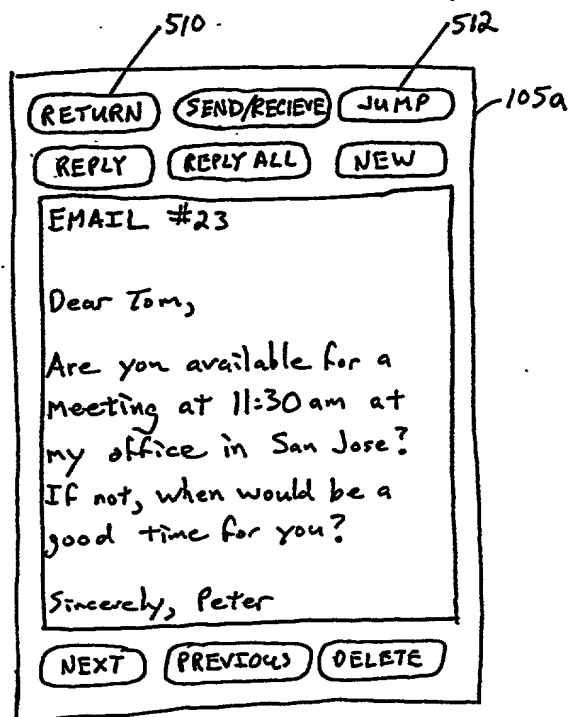 510
512
RETURN SEND/RECIEVE JUMP
105a
REPLY REPLY ALL NEW
EMAIL #23
Dear Tom,
Are you available for a
meeting at 11:30 am at
my office in San Jose?
If not, when would be a
good time for you?
Sincerely, Peter
NEXT PREVIOUS DELETE